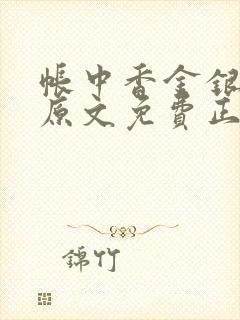 帳中香金銀
原文免費正
錦竹